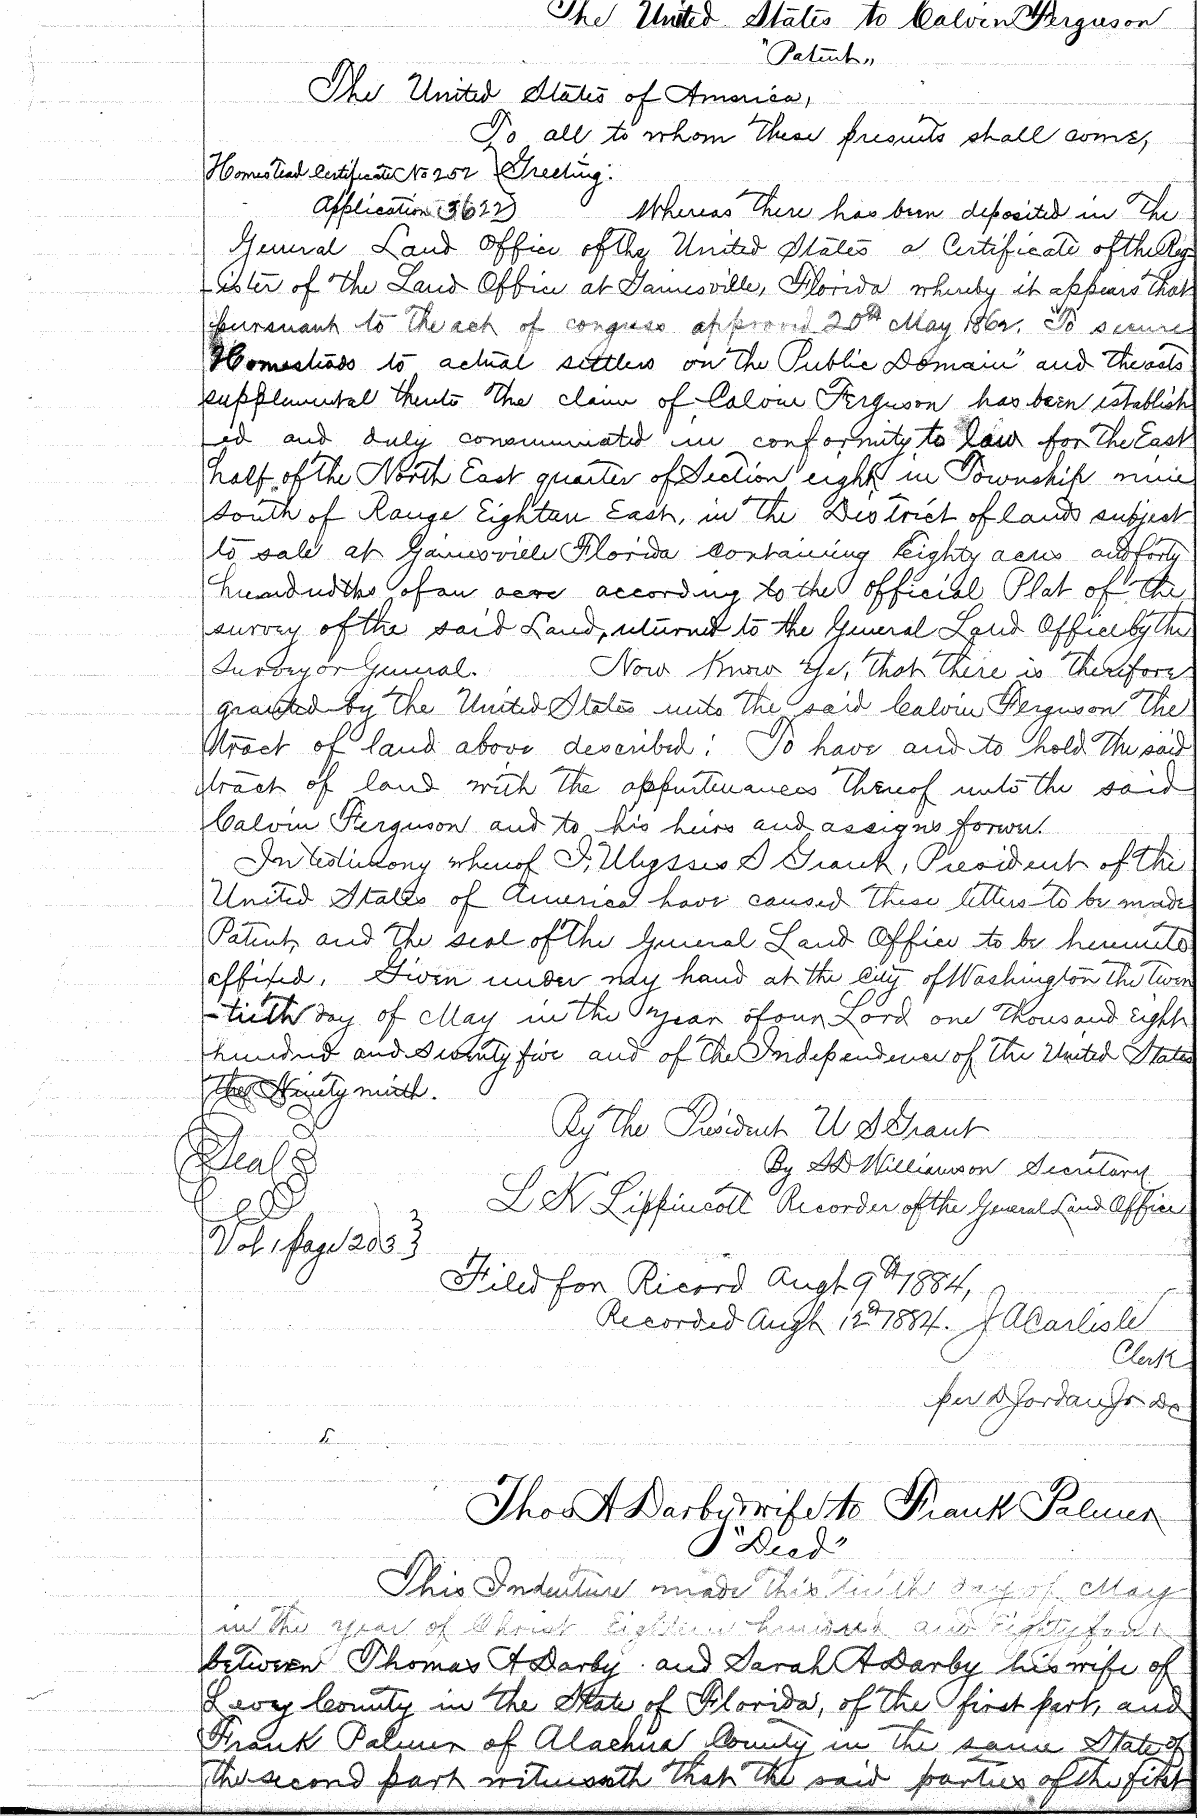 The United States to Calvin Ferguson
"Patent"
The United States of America,
To all to whom these presents shall come,
Homestead Certificate No 252 } Greeting:
Application (3622) Whereas there has been deposited in the
General Land Office of the United States a Certificate of the Reg
ister of the Land Office at Gainesville, Florida whereby it appears that
pursuant to the act of congress approved 20th May 1862. To secure
Homesteads to actual settlers on the Public Domain" and the acts
supplemental thereto the claim of Calvin Ferguson has been establish
ed and duly consummated in conformity to law for the East
half of the North East quarter of Section eight in Township nine
South of Range Eighteen East, in the District of lands subject
to sale at Gainesville Florida containing Eighty acres and forty
hundredths of an acre according to the official Plat of the
survey of the said Land, returned to the General Land Office by the
Surveyor General. Now Know Ye, that there is therefore
granted by the United States unto the said Calvin Ferguson the
tract of land above described: To have and to hold the said
tract of land with the appurtenances thereof unto the said
Calvin Ferguson and to his heirs and assigns forever.
In testimony whereof I, Ulysses S Grant, President of the
United States of America have caused these letters to be made
Patent, and the seal of the General Land Office to be hereunto
affixed. Given under my hand at the city of Washington the twen
-tieth day of May in the year of our Lord one thousand Eight
hundred and Seventy five and of the Independence of the United States
the Ninety ninth.
By the President U S Grant
Seal
By S D Williamson Secretary
L K Lippincott Recorder of the General Land Office
Vol 1 page 203 }
Filed for Record Augt 9th 1884,
Recorded Augt 12th 1884. J A Carlisle
Clerk
per D Jordan Jr DC
Thos A Darby & wife to Frank Palmer
"Deed"
This Indenture made this tenth day of May
in the year of Christ Eighteen hundred and Eighty four
between Thomas A Darby and Sarah A Darby his wife of
Levy County in the State of Florida, of the first part, and
Frank Palmer of Alachua County in the same State of
the second part witnesseth that the said parties of the first